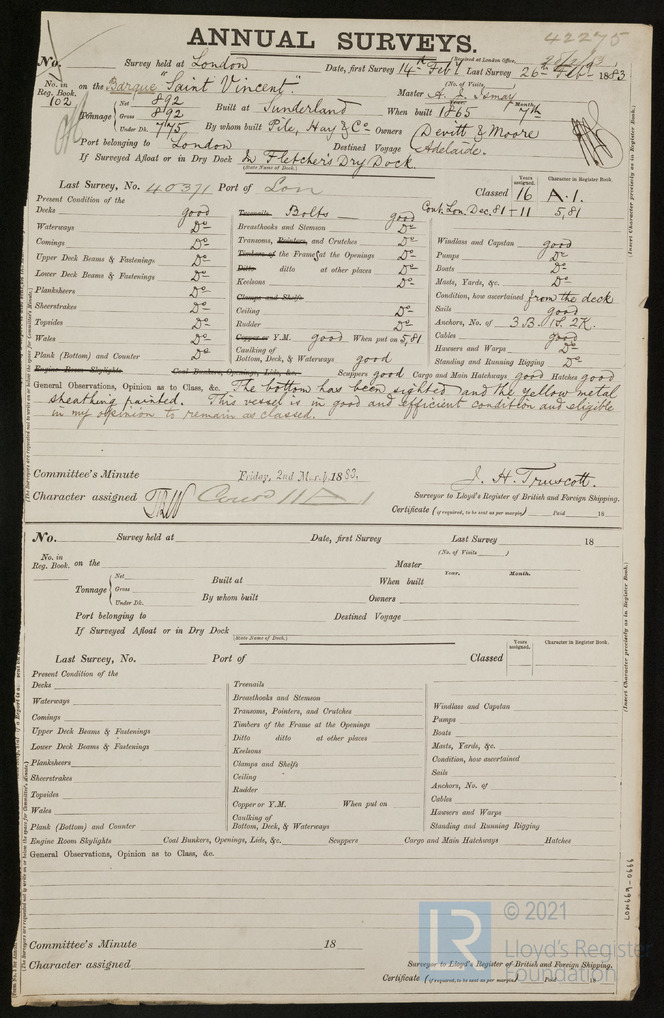 42275
ANNUAL SURVEYS.
No. Survey held at London Date, first Survey 14th Feby Last Survey 26th Feb 1883
(Received at London Office,
(No. of Visits,
No. in Reg. Book. 102 on the Barque "Saint Vincent" Master A. J. Ismay
Tonnage Net 892 Gross 892 Under Dk. 775 Built at Sunderland When built Year. 1865 Month. 7th
By whom built Pile, Hay & Co Owners Devitt & Moore
Port belonging to London Destined Voyage Adelaide.
If Surveyed Afloat or in Dry Dock In Fletcher's Dry Dock.
(State Name of Dock.)
Last Survey, No. 40371 Port of Lon Classed Years assigned. 16 Character in Register Book. A.1.
Cont. Lon. Dec. 81 + 11 5,81
Present Condition of the
Decks good
Waterways Do
Comings Do
Upper Deck Beams & Fastenings Do
Lower Deck Beams & Fastenings Do
Planksheers Do
Sheerstrakes Do
Topsides Do
Wales Do
Plank (Bottom) and Counter Do
Treenails Bolts good
Breasthooks and Stemson Do
Transoms, Pointers, and Crutches Do
Timbers of the Frames at the Openings Do
Ditto ditto at other places Do
Keelsons Do
Clamps and Shelfs
Ceiling Do
Rudder Do
Copper or Y.M. good When put on 5,81
Caulking of
Bottom, Deck, & Waterways good
Windlass and Capstan good
Pumps Do
Boats Do
Masts, Yards, &c. Do
Condition, how ascertained from the deck
Sails good
Anchors, No. of 3.B. 1S. 2K.
Cables good
Hawsers and Warps Do
Standing and Running Rigging Do
Engine Room Skylights Coal Bunkers, Openings, Lids, &c. Scuppers good Cargo and Main Hatchways good Hatches good
General Observations, Opinion as to Class, &c. The bottom has been sighted and the yellow metal
sheathing painted. This vessel is in good and efficient condition and eligible
in my opinion to remain as classed.
Committee's Minute Friday, 2nd March 1883.
J. H. Truscott.
Character assigned Cont 11 A 1
Surveyor to Lloyd's Register of British and Foreign Shipping.
Certificate (if required, to be sent as per margin) Paid 18
(Insert Character precisely as in Register Book.)
(The Surveyors are requested not to write on or below the space for Committee's Minute.)
No. Survey held at Date, first Survey Last Survey 18
(No. of Visits )
No. in Reg. Book. on the Master
Tonnage Net Gross Under Dk. Built at When built Year. Month.
By whom built Owners
Port belonging to Destined Voyage
If Surveyed Afloat or in Dry Dock
(State Name of Dock.)
Last Survey, No. Port of Classed Years assigned. Character in Register Book.
Present Condition of the
Decks
Waterways
Comings
Upper Deck Beams & Fastenings
Lower Deck Beams & Fastenings
Planksheers
Sheerstrakes
Topsides
Wales
Plank (Bottom) and Counter
Treenails
Breasthooks and Stemson
Transoms, Pointers, and Crutches
Timbers of the Frame at the Openings
Ditto ditto at other places
Keelsons
Clamps and Shelfs
Ceiling
Rudder
Copper or Y.M. When put on
Caulking of
Bottom, Deck, & Waterways
Windlass and Capstan
Pumps
Boats
Masts, Yards, &c.
Condition, how ascertained
Sails
Anchors, No. of
Cables
Hawsers and Warps
Standing and Running Rigging
Engine Room Skylights Coal Bunkers, Openings, Lids, &c. Scuppers Cargo and Main Hatchways Hatches
General Observations, Opinion as to Class, &c.
Committee's Minute 18
Character assigned
Surveyor to Lloyd's Register of British and Foreign Shipping.
Certificate (if required, to be sent as per margin) Paid 18
(Insert Character precisely as in Register Book.)
(The Surveyors are requested not to write on or below the space for Committee's Minute.)
LON669-0666
© 2021
Lloyd's Register
Foundation